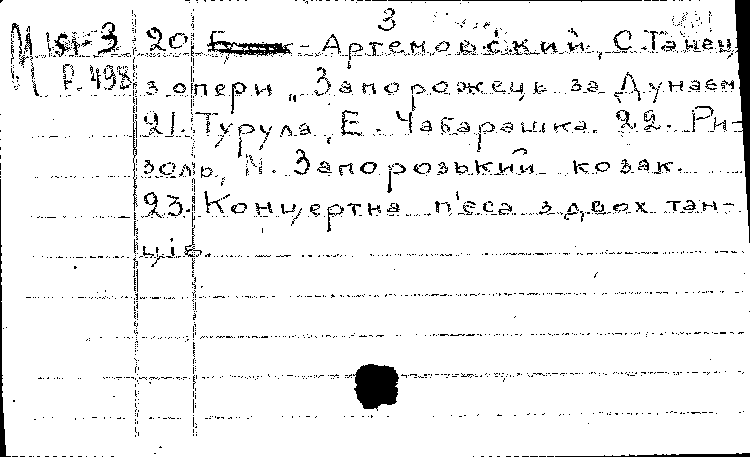 3
M 1st-3 20. -Артемовський, С. Танец
P. 498 з опери „Запорожець за Дунаєм
21. Турула, Е. Чабарашка. 22. Ри-
золь, М. Запорозький козак.
23. Концертна п'єса з двох тан-
ців.